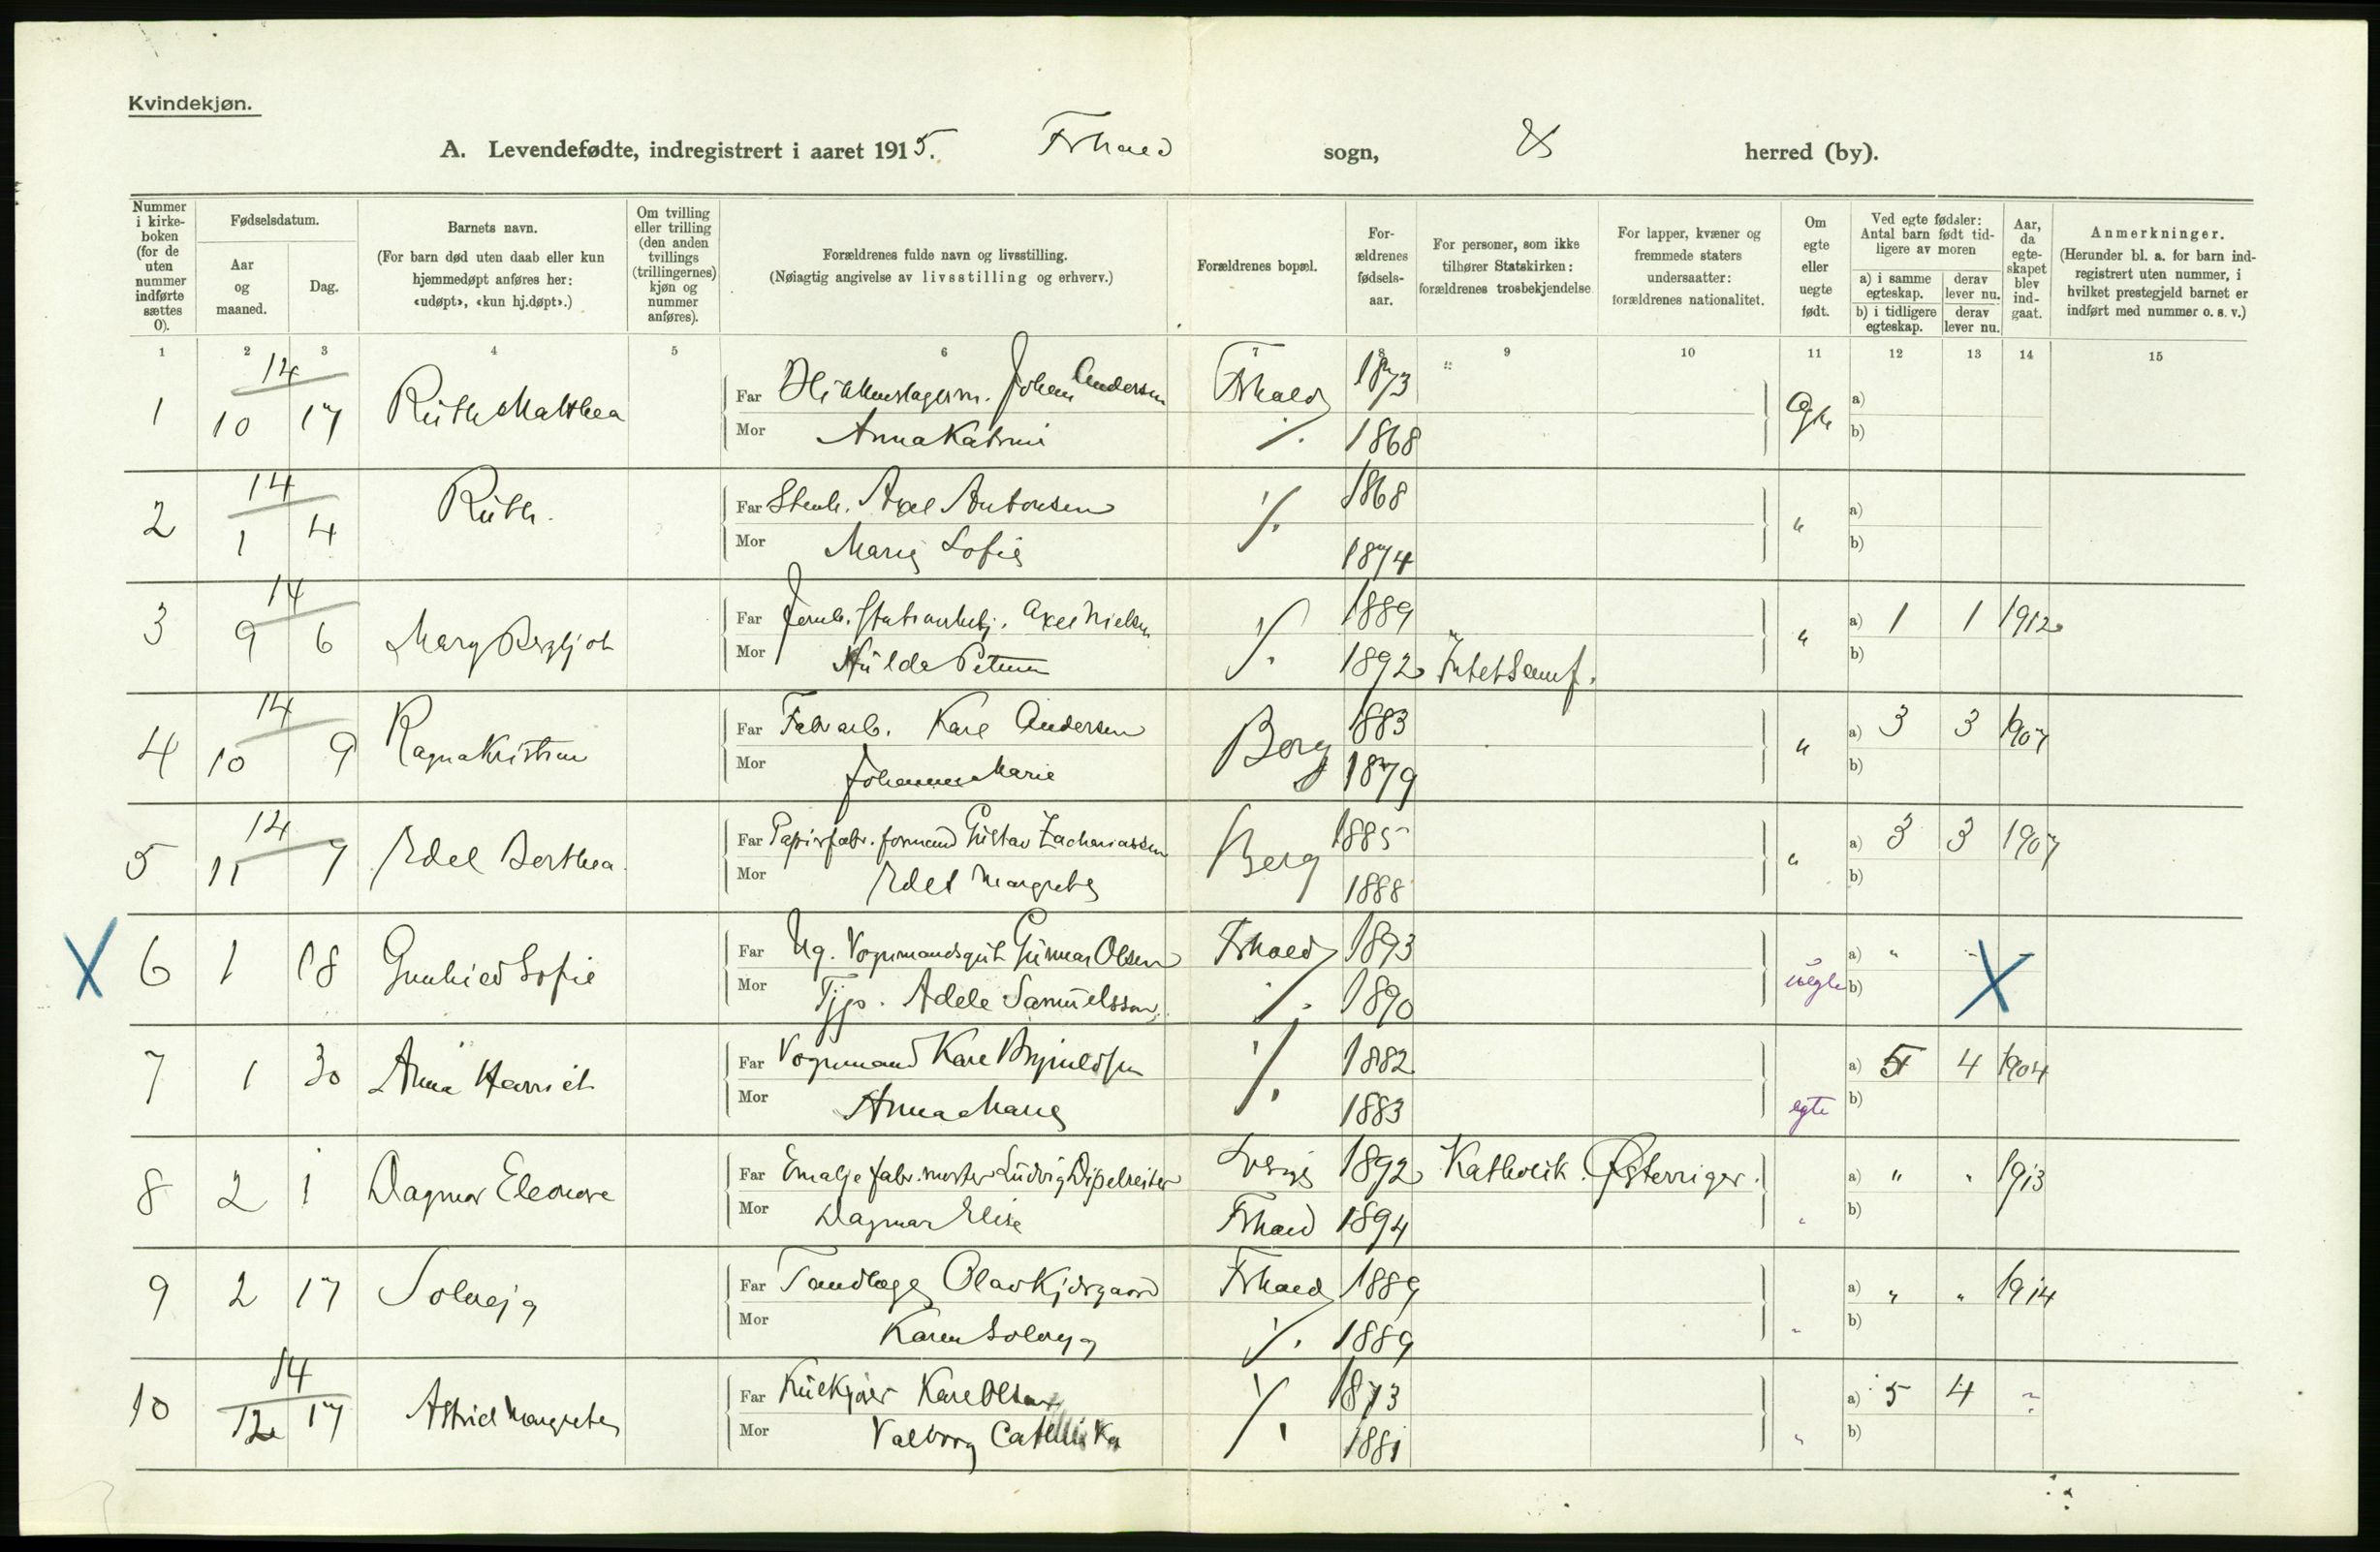 Kvindekjøn.
A. Levendefødte, indregistrert i aaret 1915. Frhald sogn, herred (by).
Nummer i kirkeboken (for de uten nummer indførte sættes 0).
Fødselsdatum.
Aar og maaned.
Dag.
Barnets navn.
(For barn død uten daab eller kun hjemmedøpt anføres her: «udøpt», «kun hj.døpt».)
Om tvilling eller trilling (den anden tvillings (trillingernes) kjøn og nummer anføres).
Forældrenes fulde navn og livsstilling.
(Nøiagtig angivelse av livsstilling og erhverv.)
Forældrenes bopæl.
Forældrenes fødselsaar.
For personer, som ikke tilhører Statskirken: forældrenes trosbekjendelse
For lapper, kvæner og fremmede staters undersaatter: forældrenes nationalitet.
Om egte eller uegte født.
Ved egte fødsler: Antal barn født tidligere av moren
a) i samme egteskap. derav lever nu.
b) i tidligere egteskap. derav lever nu.
Aar, da egteskapet blev indgaat.
Anmerkninger.
(Herunder bl. a. for barn indregistrert uten nummer, i hvilket prestegjeld barnet er indført med nummer o. s. v.)
1 2 3 4 5 6 7 8 9 10 11 12 13 14 15
14
1 10 17 Ruth Malthea Far Johan Andersen Frhald 1873 Egte a)
Mor Anna Katrine ./. 1868 b)
14
2 1 4 Ruth. Far Stenh. Axel Antonsen ./. 1868 " a)
Mor Marie Sofie 1874 b)
14
3 9 6 Mary Bergljot Far Axel Nielsen ./. 1889 " a) 1 1 1912
Mor Hulda Petrine 1892 Intet Samf. b)
14
4 10 9 Ragna Kristine Far Fabr arb. Karl Andersen Berg 1883 " a) 3 3 1907
Mor Johanne Marie 1879 b)
14
5 11 7 Edel Berthea. Far Papirfabr. formand Gustav Zachariassen Berg 1885 " a) 3 3 1907
Mor Edel Margrethe 1888 b)
X 6 1 18 Gunhild Sofie Far Ug. Vognmandsgut Gunnar Olsen Frhald 1893 uegte a) " - X
Mor Tjp. Adele Samuelsson. ./. 1890 b)
7 1 30 Anna Harriet Far Vognmand Karl Brynildsen ./. 1882 egte a) 5 4 1904
Mor Anna Marie 1883 b)
8 2 1 Dagmar Eleonore Far Emalje fabr. mester Ludvig Dipelreiter 1892 Katholik. Østerriger. " a) " " 1913
Mor Dagmar Elise Frhald 1894 b)
9 2 17 Solveig Far Tandlæge Olav Kjdsgaard Frhald 1889 " a) " " 1914
Mor Karen Solveig ./. 1889 b)
14
10 12 17 Astrid Margrethe Far Kulkjører Karl Olsen ./. 1873 " a) 5 4 ?
Mor Valborg Cathrika 1881 b)